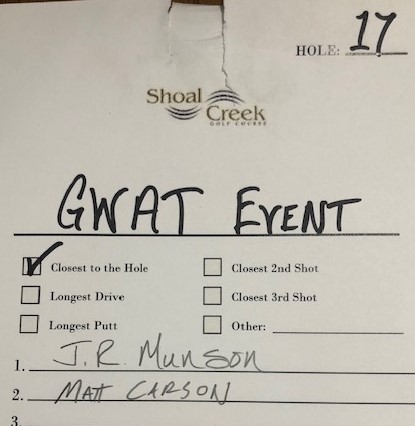 HOLE: 17
Shoal
Creek
GOLF COURSE
GWAT EVENT
Closest to the Hole
Closest 2nd Shot
Longest Drive
Closest 3rd Shot
Longest Putt
Other:
1. J.R. Munson
2. MATT CARSON
3.